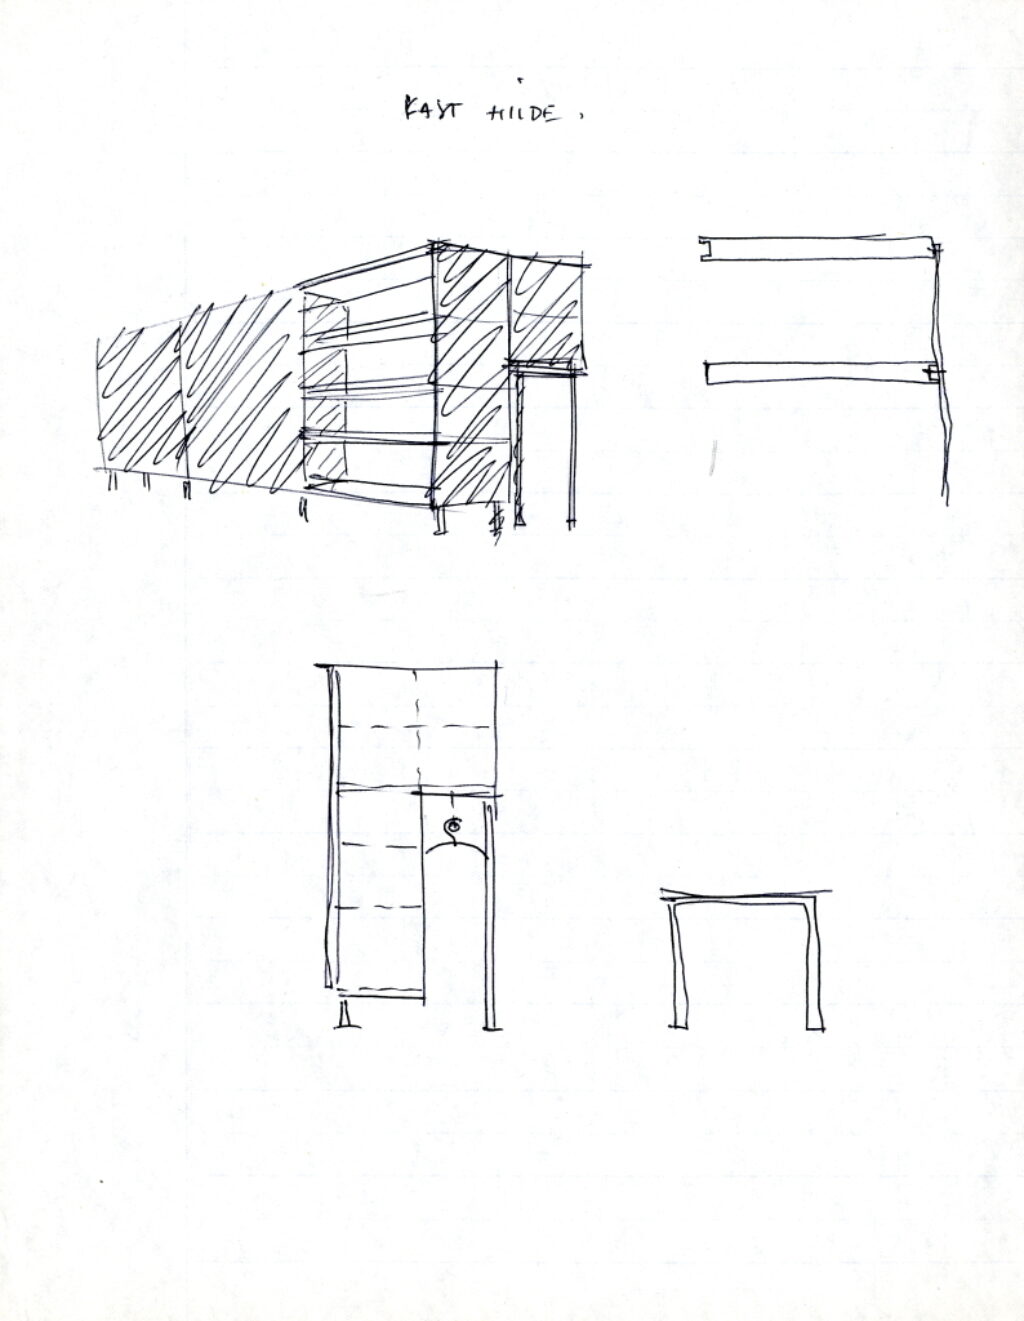 KAST HILDE.